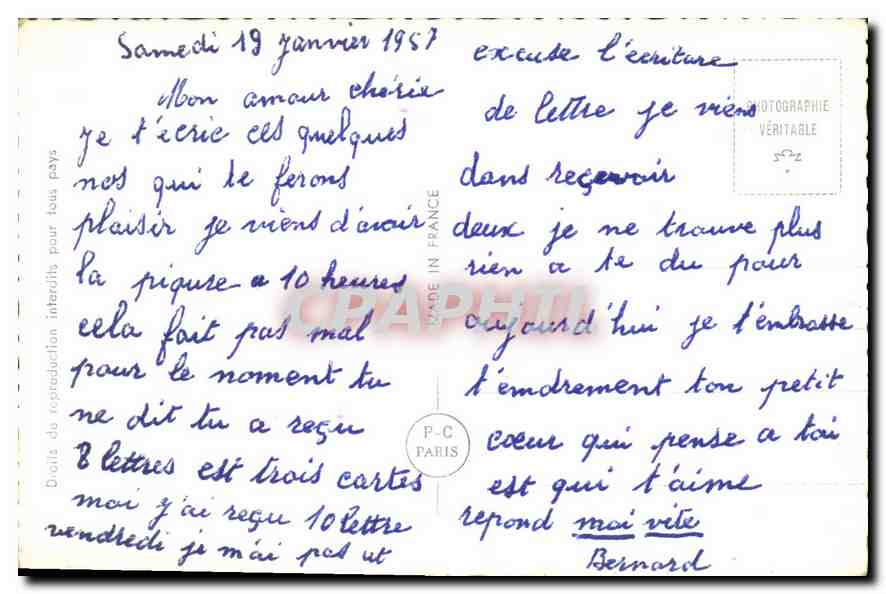 Samedi 19 Janvier 1957
Mon amour chérie
Je t'écrie ces quelques
nos qui te ferons
plaisir je viens d'avoir
la piqure a 10 heures
cela fait pas mal
pour le moment tu
ne dit tu a reçu
8 lettres est trois cartes
moi j'ai reçu 10 lettre
vendredi je m'ai pas ut
excuse l'écriture
de lettre je viens
dans reçevoir
deux je ne trouve plus
rien a te du pour
aujourd'hui je t'embrasse
t'emdrement ton petit
cœur qui pense a toi
est qui t'aime
repond moi vite
Bernard
PHOTOGRAPHIE
VÉRITABLE
Droits de reproduction interdits pour tous pays
MADE IN FRANCE
P-C
PARIS
CPAPHIL